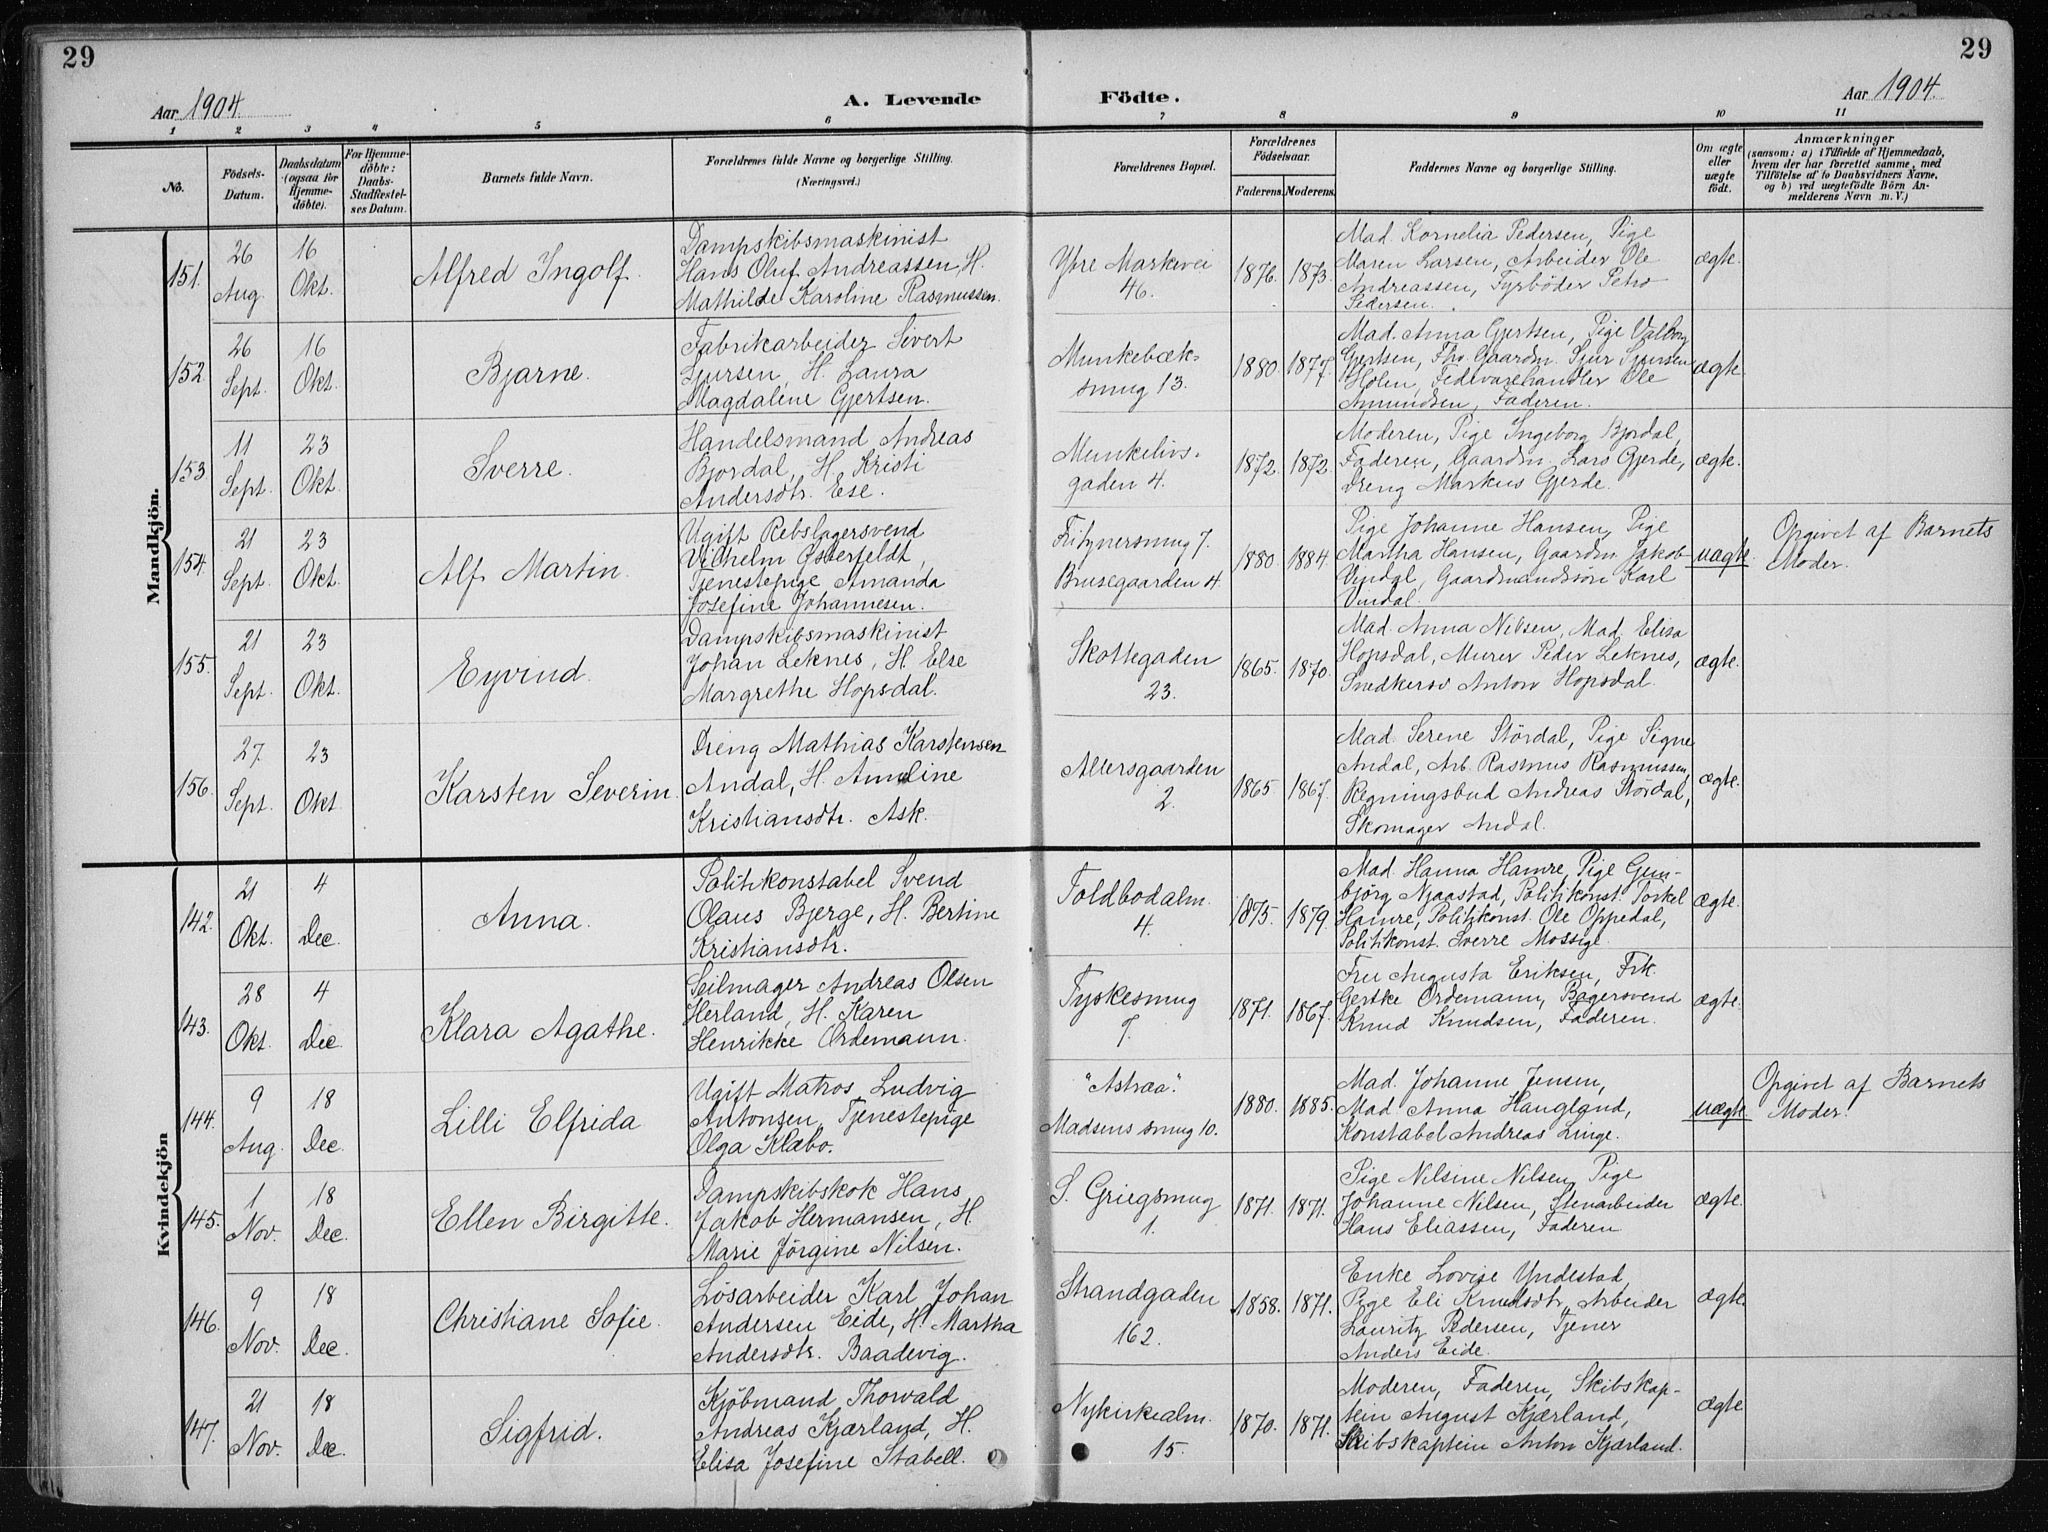 29
29
Aar 1904.
A. Levende Födte.
Aar 1904.
1 2 3 4 5 6 7 8 9 10 11
No.
Födsels-
Datum.
Daabsdatum
(ogsaa for
Hjemme-
döbte).
For Hjemme-
döbte:
Daabs-
Stadfæstel-
ses Datum.
Barnets fulde Navn.
Forældrenes fulde Navne og borgerlige Stilling.
(Næringsvei.)
Forældrenes Bopæl.
Forældrenes
Födselsaar.
Faderens. Moderens.
Faddernes Navne og borgerlige Stilling.
Om ægte
eller
uægte
födt.
Anmærkninger
(saasom: a) i Tilfælde af Hjemmedaab,
hvem der har forrettet samme, med
Tilföielse af to Daabsvidners Navne,
og b) ved uægtefödte Börn An-
melderens Navn m. V.)
Mandkjön.
151.
26
Aug.
16
Okt.
Alfred Ingolf.
Dampskibsmaskinist
Hans Oluf Andreassen, H.
Mathilde Karoline Rasmussen.
Ytre Markevei
46.
1876. 1873.
Mad. Kornelia Pedersen, Pige
Maren Larsen, Arbeider Ole
Andreassen, Fyrböder Petro
Pedersen.
ægte.
152.
26
Sept.
16
Okt.
Bjarne.
Fabrikarbeider Sivert
Sjursen, H. Laura
Magdalene Gjertsen.
Munkebæk-
smug 13.
1880. 1877.
Mad. Anna Gjertsen, Pige Valborg
Gjertsen, Fhv. Gaardm. Sjur
Holen, Fedevarehandler Ole
Amundsen, Faderen.
ægte.
153.
11
Sept.
23
Okt.
Sverre.
Handelsmand Andreas
Bjordal, H. Kristi
Andersdtr. Ese.
Munkelivs-
gaden 4.
1872. 1872.
Moderen, Pige Ingeborg Bjordal,
Faderen, Gaardm. Lars Gjerde,
Dreng Markus Gjerde.
ægte.
154.
21
Sept.
23
Okt.
Alf Martin.
Ugift Rebslagersvend
Vilhelm Österfeldt,
Tjenestepige Amanda
Josefine Johannesen.
Fritznersmug 7.
Brusegaarden 4.
1880. 1884.
Pige Johanne Hansen, Pige
Martha Hansen, Gaardm Jakob
Vindal, Gaardmandssön Karl
Vindal.
uægte.
Opgivet af Barnets
Moder.
155.
21
Sept.
23
Okt.
Eyvind.
Dampskibsmaskinist
Johan Leknes, H. Else
Margrethe Hopsdal.
Skottegaden
23.
1865. 1870.
Mad. Anna Nilsen, Mad. Elisa
Hopsdal, Murer Peder Leknes,
Snedkersv Anton Hopsdal.
ægte.
156.
27.
Sept.
23
Okt.
Karsten Severin.
Dreng Mathias Karstensen
Andal, H. Anneline
Kristiansdtr. Ask.
Altersgaarden
2.
1865 1867.
Mad. Serene Stördal, Pige Signe
Andal, Arb. Rasmus Rasmussen,
Regningsbud Andreas Stördal,
Skomager Andal.
ægte.
Kvindekjön
142.
21
Okt.
4
Dec.
Anna.
Politikonstabel Svend
Olaus Bjerge, H. Bertine
Kristiansdtr.
Toldbodalm.
4.
1875. 1879.
Mad. Hanna Hamre, Pige Gun-
björg Njaastad, Politikonst. Torkel
Hamre, Politikonst. Ole Oppedal,
Politikonst. Sverre Mossige.
ægte.
143.
28
Okt.
4
Dec.
Klara Agathe.
Seilmager Andreas Olsen
Herland, H. Karen
Henrikke Ordemann.
Tyskesmug
7.
1871. 1867.
Fru Augusta Eriksen, Frk.
Gertke Ordemann, Bagersvend
Knud Knudsen, Faderen.
ægte.
144.
9
Aug.
18
Dec.
Lilli Elfrida
Ugift Matros Ludvig
Antonsen, Tjenestepige
Olga Klæbo.
"Astræa".
Madsens smug 10.
1880. 1885.
Mad. Johanne Jensen,
Mad. Anna Haugland,
Konstabel Andreas Linge.
uægte.
Opgivet af Barnets
Moder.
145.
1
Nov.
18
Dec.
Ellen Birgitte.
Dampskibskok Hans
Jakob Hermansen, H.
Marie Jörgine Nilsen.
S. Griegsmug
1.
1871. 1871.
Pige Nilsine Nilsen, Pige
Johanne Nilsen, Stenarbeider
Hans Eliassen, Faderen.
ægte.
146.
9
Nov.
18
Dec.
Christiane Sofie.
Lösarbeider Karl Johan
Andersen Eide, H. Martha
Andersdtr. Baadevig.
Strandgaden
162.
1858. 1871.
Enke Lovise Yndestad,
Pige Eli Knudsdtr, Arbeider
Lauritz Pedersen, Tjener
Anders Eide.
ægte.
147.
21
Nov.
18
Dec.
Sigfrid.
Kjöbmand Thorvald
Andreas Kjærland, H.
Elisa Josefine Stabell.
Nykirkealm.
15.
1870. 1871.
Moderen, Faderen, Skibskap-
tein August Kjærland,
Skibskaptein Anton Kjærland.
ægte.